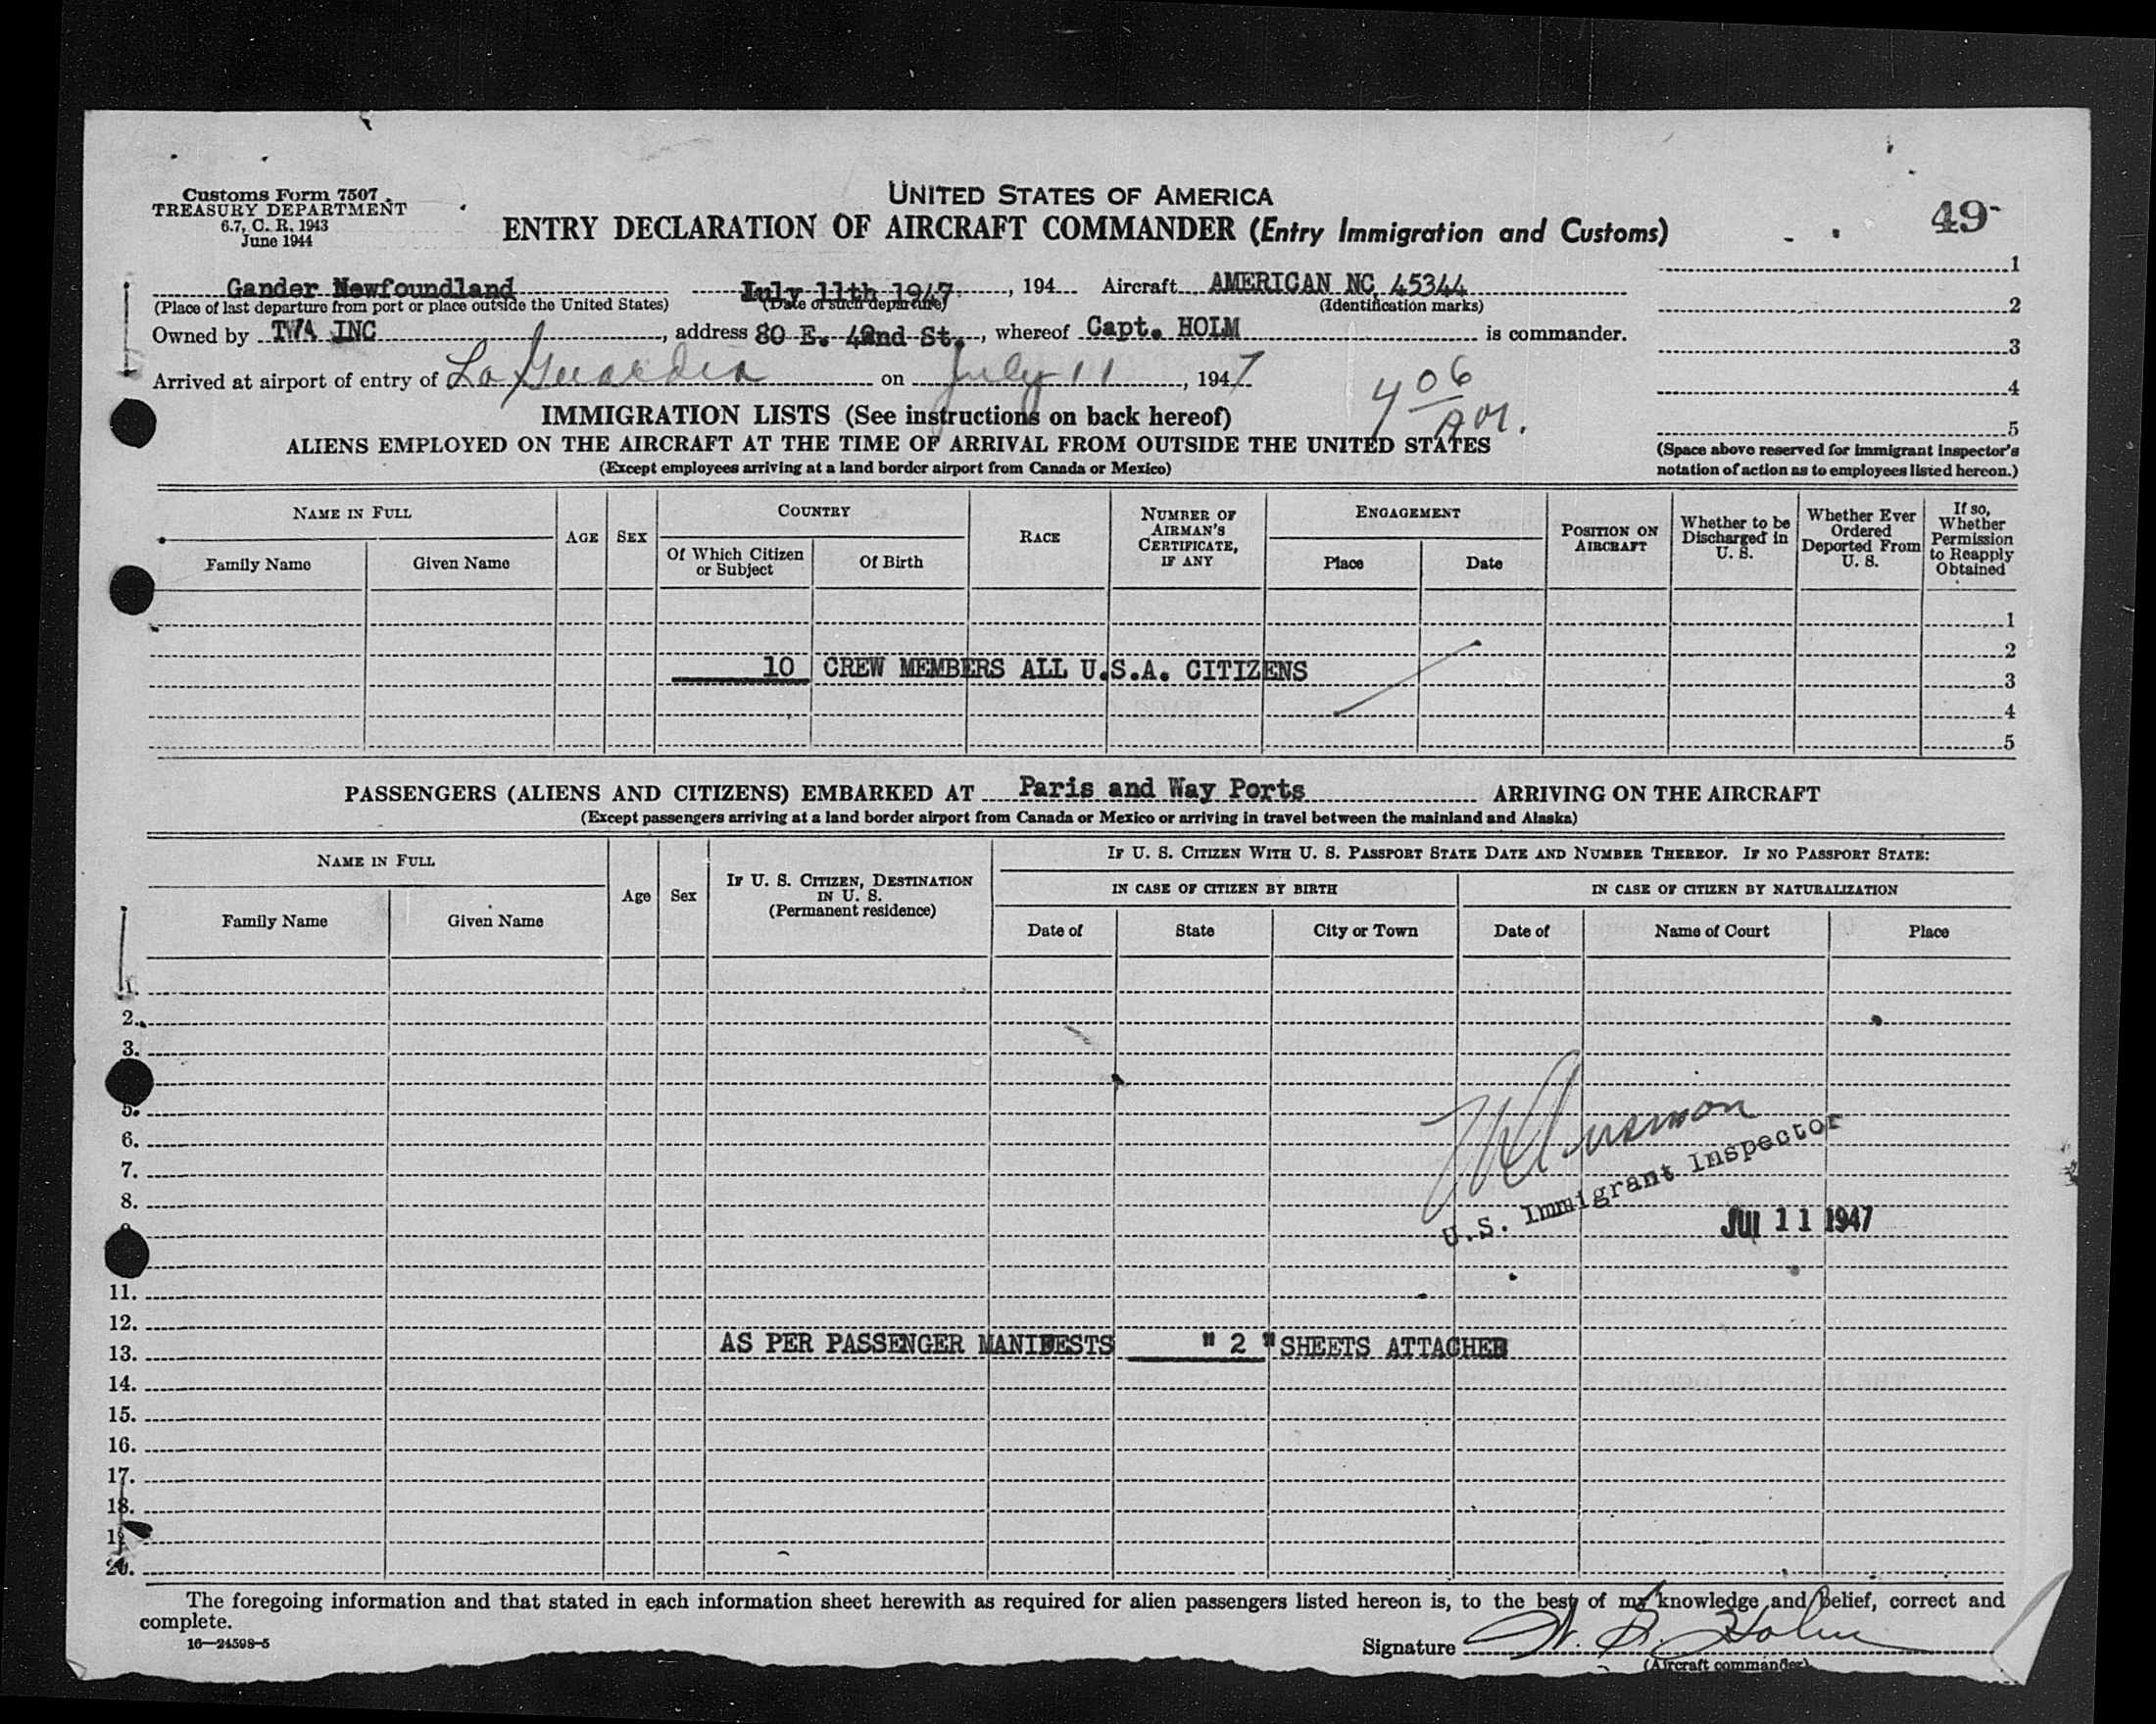 Customs Form 7507
TREASURY DEPARTMENT
6.7, C. R. 1943
June 1944
UNITED STATES OF AMERICA
ENTRY DECLARATION OF AIRCRAFT COMMANDER (Entry Immigration and Customs)
49
Gander Newfoundland July 11th 1947, 194 Aircraft AMERICAN NC 45344
(Place of last departure from port or place outside the United States) (Date of such departure) (Identification marks)
Owned by TWA INC, address 80 E. 42nd St., whereof Capt. HOLM is commander.
Arrived at airport of entry of La Guardia on July 11, 1947
4 06 AM.
1
2
3
4
5
(Space above reserved for immigrant inspector's
notation of action as to employees listed hereon.)
IMMIGRATION LISTS (See instructions on back hereof)
ALIENS EMPLOYED ON THE AIRCRAFT AT THE TIME OF ARRIVAL FROM OUTSIDE THE UNITED STATES
(Except employees arriving at a land border airport from Canada or Mexico)
NAME IN FULL
Family Name
Given Name
AGE
SEX
COUNTRY
Of Which Citizen
or Subject
Of Birth
RACE
NUMBER OF
AIRMAN'S
CERTIFICATE,
IF ANY
ENGAGEMENT
Place
Date
POSITION ON
AIRCRAFT
Whether to be
Discharged in
U. S.
Whether Ever
Ordered
Deported From
U. S.
If so,
Whether
Permission
to Reapply
Obtained
1
2
10 CREW MEMBERS ALL U.S.A. CITIZENS
3
4
5
PASSENGERS (ALIENS AND CITIZENS) EMBARKED AT Paris and Way Ports ARRIVING ON THE AIRCRAFT
(Except passengers arriving at a land border airport from Canada or Mexico or arriving in travel between the mainland and Alaska)
NAME IN FULL
Family Name
Given Name
Age
Sex
IF U. S. CITIZEN, DESTINATION
IN U. S.
(Permanent residence)
IF U. S. CITIZEN WITH U. S. PASSPORT STATE DATE AND NUMBER THEREOF. IF NO PASSPORT STATE:
IN CASE OF CITIZEN BY BIRTH
Date of
State
City or Town
IN CASE OF CITIZEN BY NATURALIZATION
Date of
Name of Court
Place
1.
2.
3.
5.
6.
7.
8.
U.S. Immigrant Inspector
JUL 11 1947
11.
12.
AS PER PASSENGER MANIFESTS " 2 " SHEETS ATTACHED
13.
14.
15.
16.
17.
18.
19
20.
The foregoing information and that stated in each information sheet herewith as required for alien passengers listed hereon is, to the best of my knowledge and belief, correct and
complete.
16—24598-5
Signature W. R. Holm
(Aircraft commander)